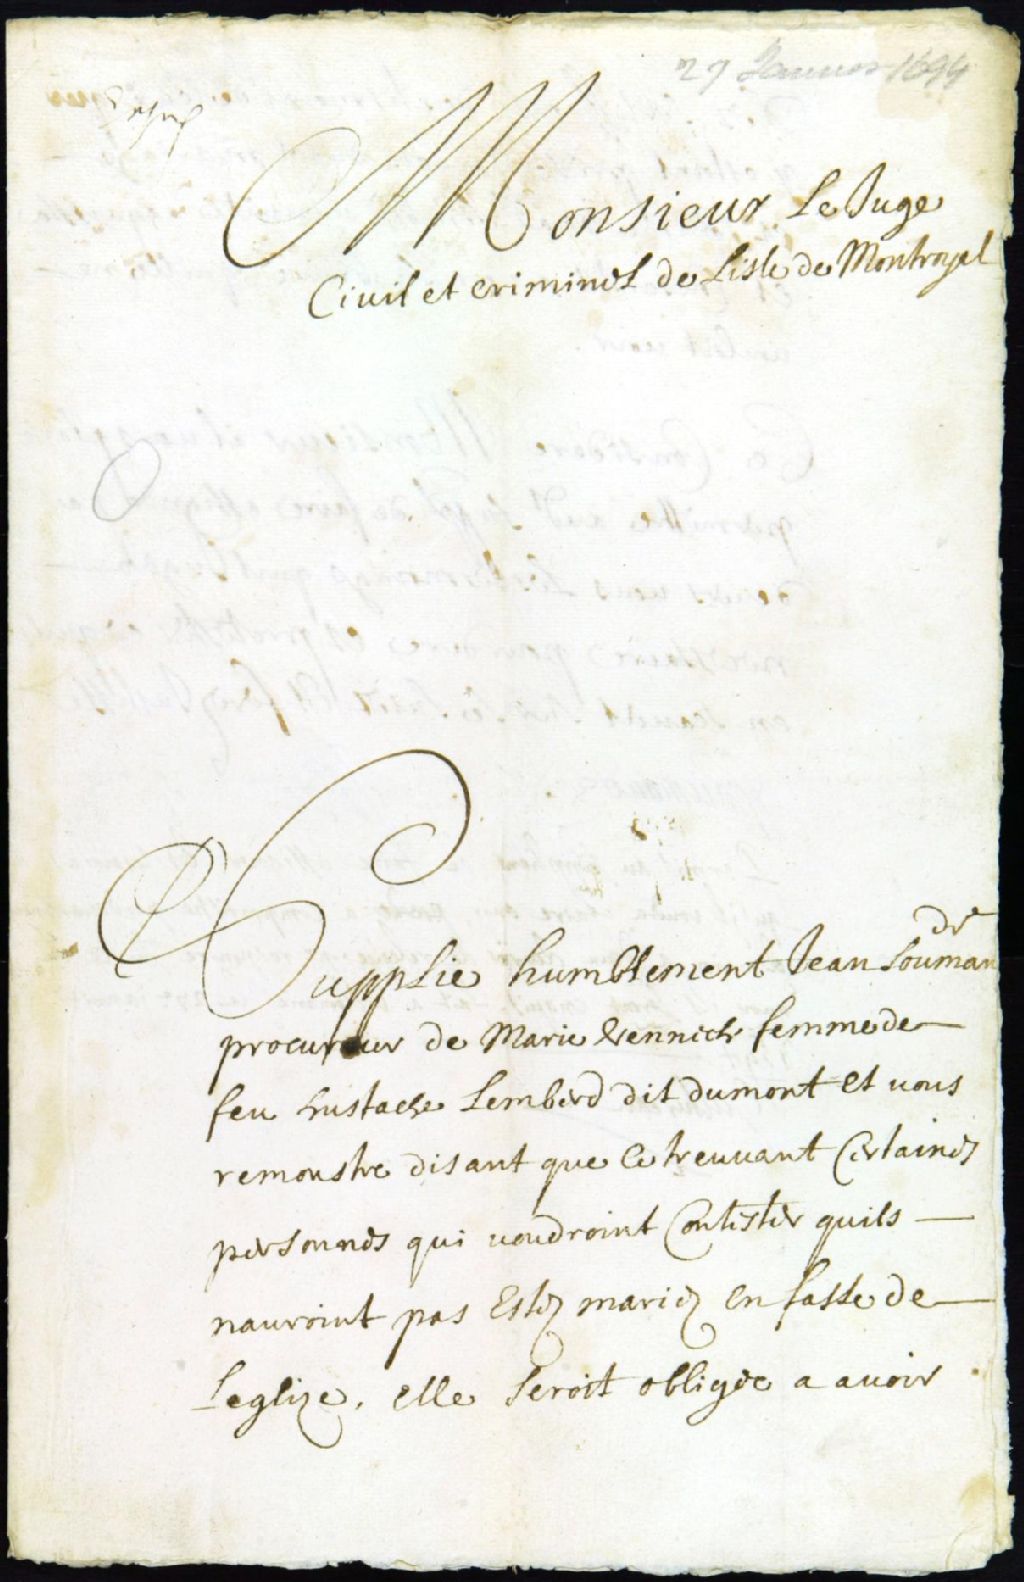 27 Janvier 1694
Monsieur Le Juge
Civil et criminel de Lisle de Montroyal
de
Supplie humblement Jean Souman
procureur de Marie femme de
feu Eustache Lemberd dit dumont et vous
remonstre disant que Ce treuvant Certaines
personnes qui voudroint Contester quils
nauroint pas Estez mariez en fasse de
Leglize. elle seroit obligée a avoir